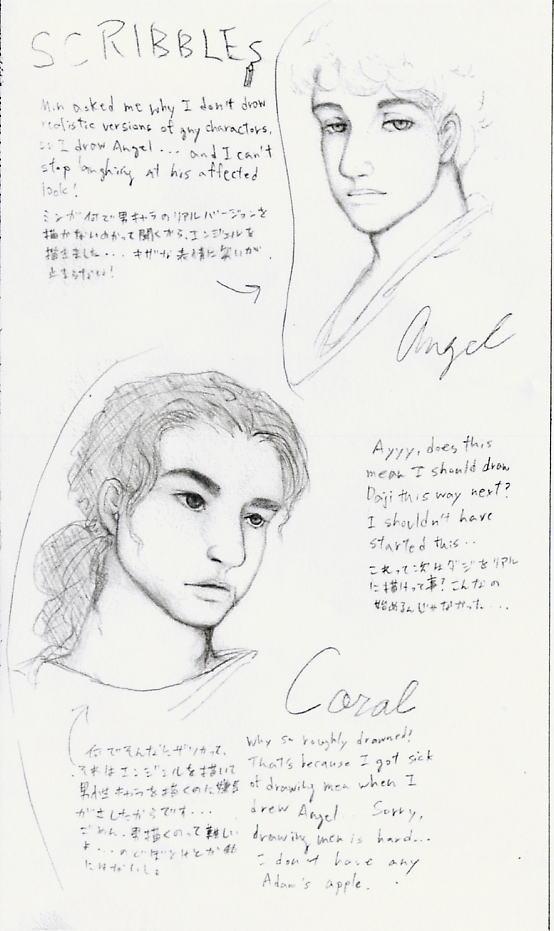 SCRIBBLES
Min asked me why I don't draw
realistic versions of my charactors,
so I drew Angel... and I can't
stop laughing at his affected
look!
ミンが何で男キャラのリアルバージョンを
描かないのかって聞くから、エンジェルを
描きました... キザな表情に笑いが
止まらない!
Angel
Ayyy, does this
mean I should draw
Daji this way next?
I shouldn't have
started this..
これって次はダジをリアル
に描けって事?こんなの
始めるんじゃなかった...
Coral
何でそんなにザツかって、
それはエンジェルを描いて
男性キャラを描くのに嫌気
がさしたからです...
ごめん、男描くのって難しい
よ...のどぼとけとか
Why so roughly drawned?
That's because I got sick
of drawing men when I
drew Angel... Sorry,
drawing men is hard...
I don't have any
Adam's apple.